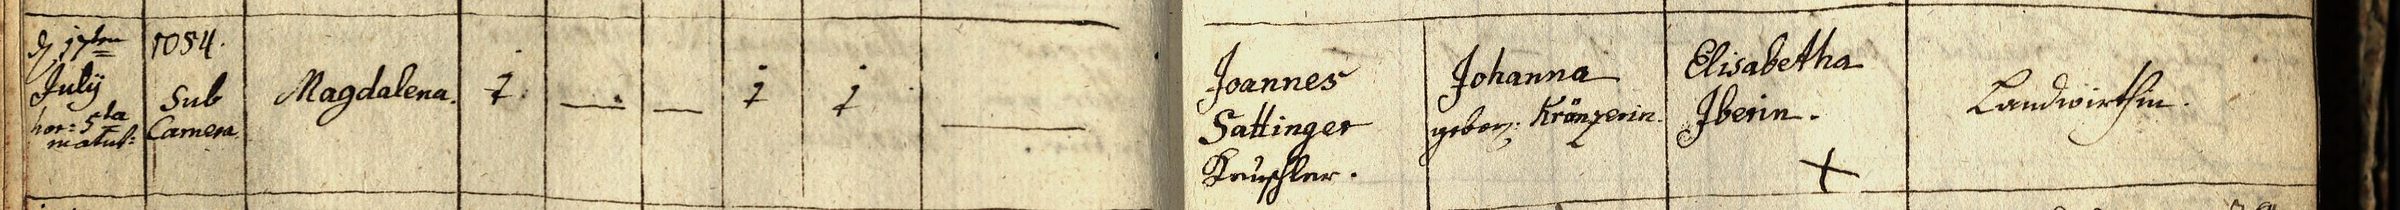 d. 17ten
July
hor: 5ta
matut:
1054.
Sub
Camera
Magdalena.
1.
—
—
1
1
—
Joannes
Sattinger
Keuschler.
Johanna
gebor: Kränzerin.
Elisabetha
Iberin.
+
Landwirthin.